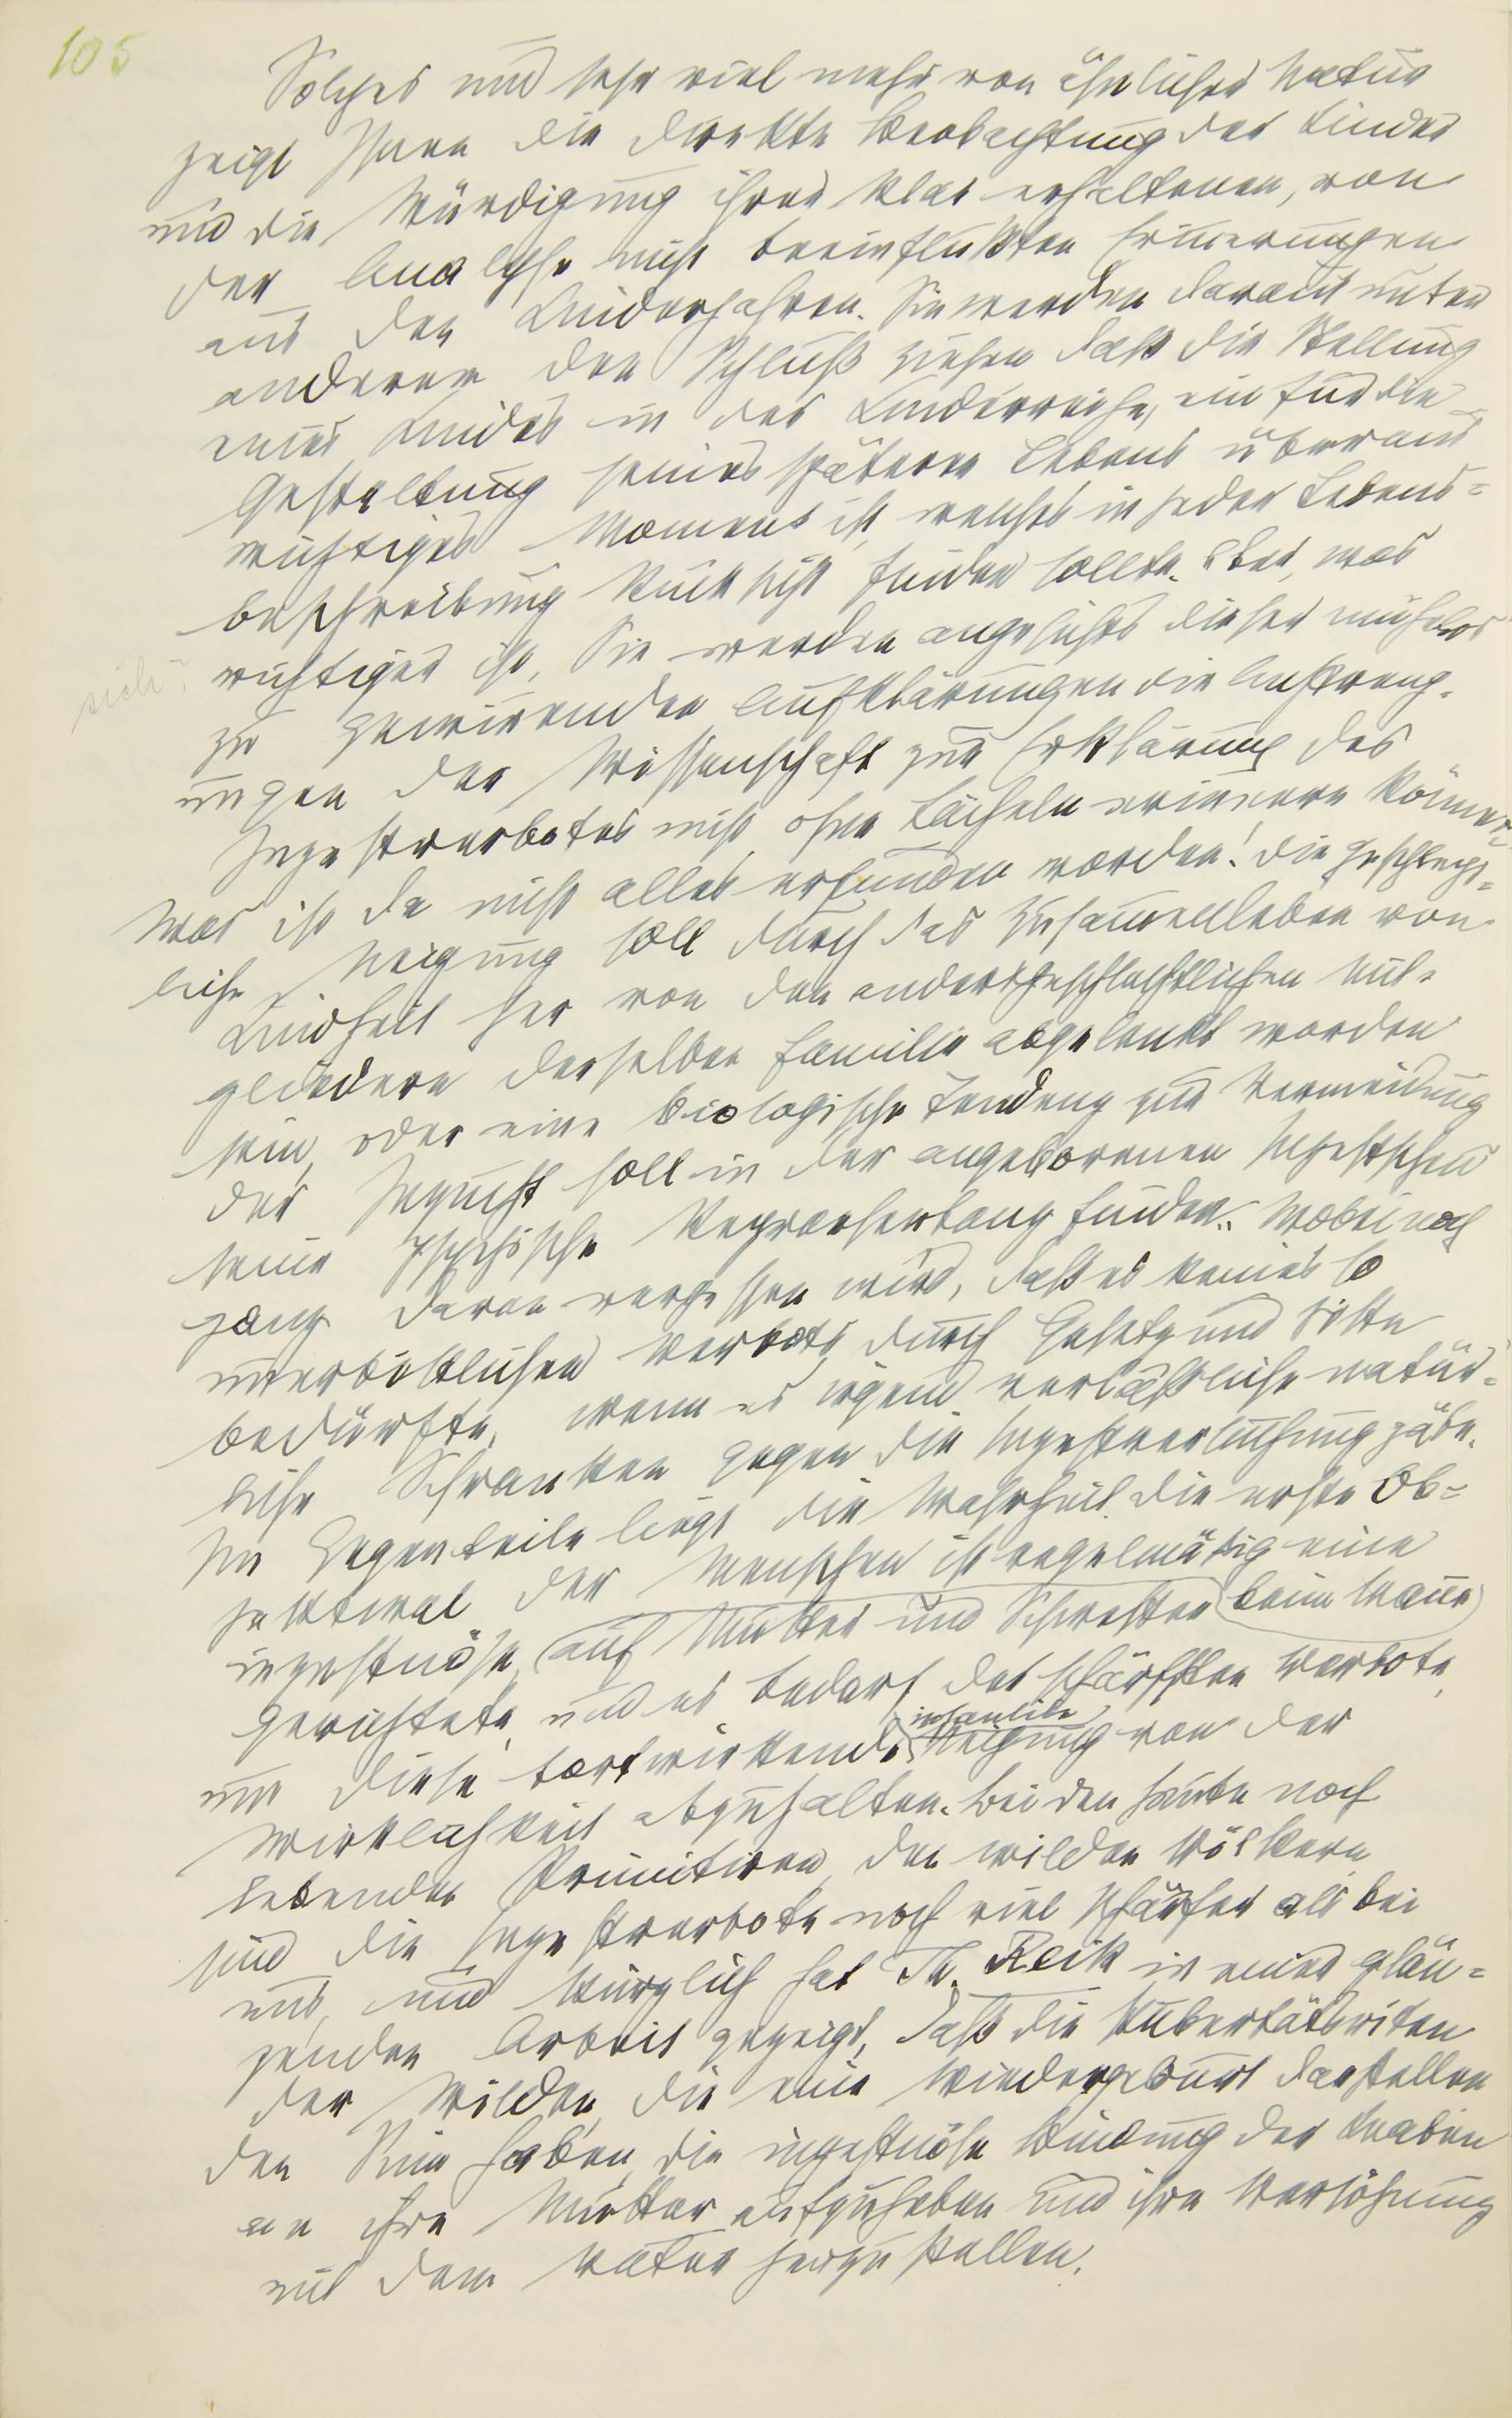 105
Solches und sehr viel mehr von ähnlicher Natur
zeigt Ihnen die direkte Beobachtung der Kinder
und die Würdigung ihrer klar erhaltenen, von
der Analyse nicht beeinflußten Erinerungen
aus den Kinderjahren. Sie werden daraus unter
anderem den Schluß ziehen daß die Stellung
eines Kindes in der Kinderreihe, ein für die
Gestaltung seines späteren Lebens überaus
wichtiges Moment ist, welches in jeder Lebens=
beschreibung Rücksicht finden sollte. Aber, was
wichtiger ist, Sie werden angesichts dieser mühelos
sich?
zu gewinenden Aufklärungen die Anstreng-
ungen der Wissenschaft zur Erklärung des
Inzestverbotes nicht ohne Lächeln erinnern können.
Was ist da nicht alles erfunden worden! Die geschlecht=
liche Neigung soll durch das Zusamenleben von
Kindheit her von den andersgeschlechtlichen Mit-
gliedern derselben Familie abgelenkt worden
sein, oder eine biologische Tendenz zur Vermeidung
der Inzucht soll in der angeborenen Inzestscheu
seine psychische Repraesentanz finden. Wobei noch
ganz daran vergessen wird, daß es keines so
unerbittlichen Verbots durch Gesetz und Sitte
bedürfte, wenn es irgend verläßliche natür=
liche Schranken gegen die Inzestversuchung gäbe.
Im Gegenteile liegt die Wahrheit. Die erste Ob=
jektwal der Menschen ist regelmäßig eine
inzestuöse, auf Mutter und Schwester beim Mann
gerichtete, und es bedarf der schärfsten Verbote,
um diese fortwirkende infantile Neigung von der
Wirklichkeit abzuhalten. Bei den heute noch
lebenden Primitiven, den wilden Völkern
sind die Inzestverbote noch viel schärfer als bei
uns, und kürzlich hat Th. Reik in einer glän=
zenden Arbeit gezeigt, daß die Pubertätsriten
der Wilden, die eine Wiedergeburt darstellen
den Sinn haben, die inzestuöse Bindung der Knaben
an ihre Mutter aufzuheben und ihre Versöhnung
mit dem Vater herzustellen.